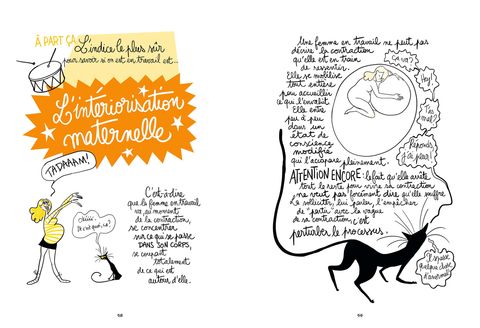 À PART ÇA,
L'indice le plus sûr
pour savoir si on est en travail est...
L'intériorisation
maternelle
TADAAAM!
C'est-à-dire
que la femme en travail
va, au moment
de la contraction,
se concentrer
sur ce qui se passe
DANS SON CORPS,
se coupant
totalement
de ce qui est
autour d'elle.
68
Une femme en travail ne peut pas
décrire la contraction
qu'elle est en train
de ressentir.
Elle se mobilise
tout entière
pour accueillir
ce qui l'envahit.
Elle entre
peu à peu
dans un
état de
conscience
modifié
qui l'accapare pleinement.
ATTENTION ENCORE : le fait qu'elle arrête
tout le reste pour vivre sa contraction
ne veut pas forcément dire qu'elle souffre.
La solliciter, lui parler, l'empêcher
de "partir" avec la vague
de sa contraction c'est
perturber le processus.
Ça va?
Hey!
T'as
mal?
Réponds,
j'ai peur!
Il se passe
quelque chose
d'anormal
69